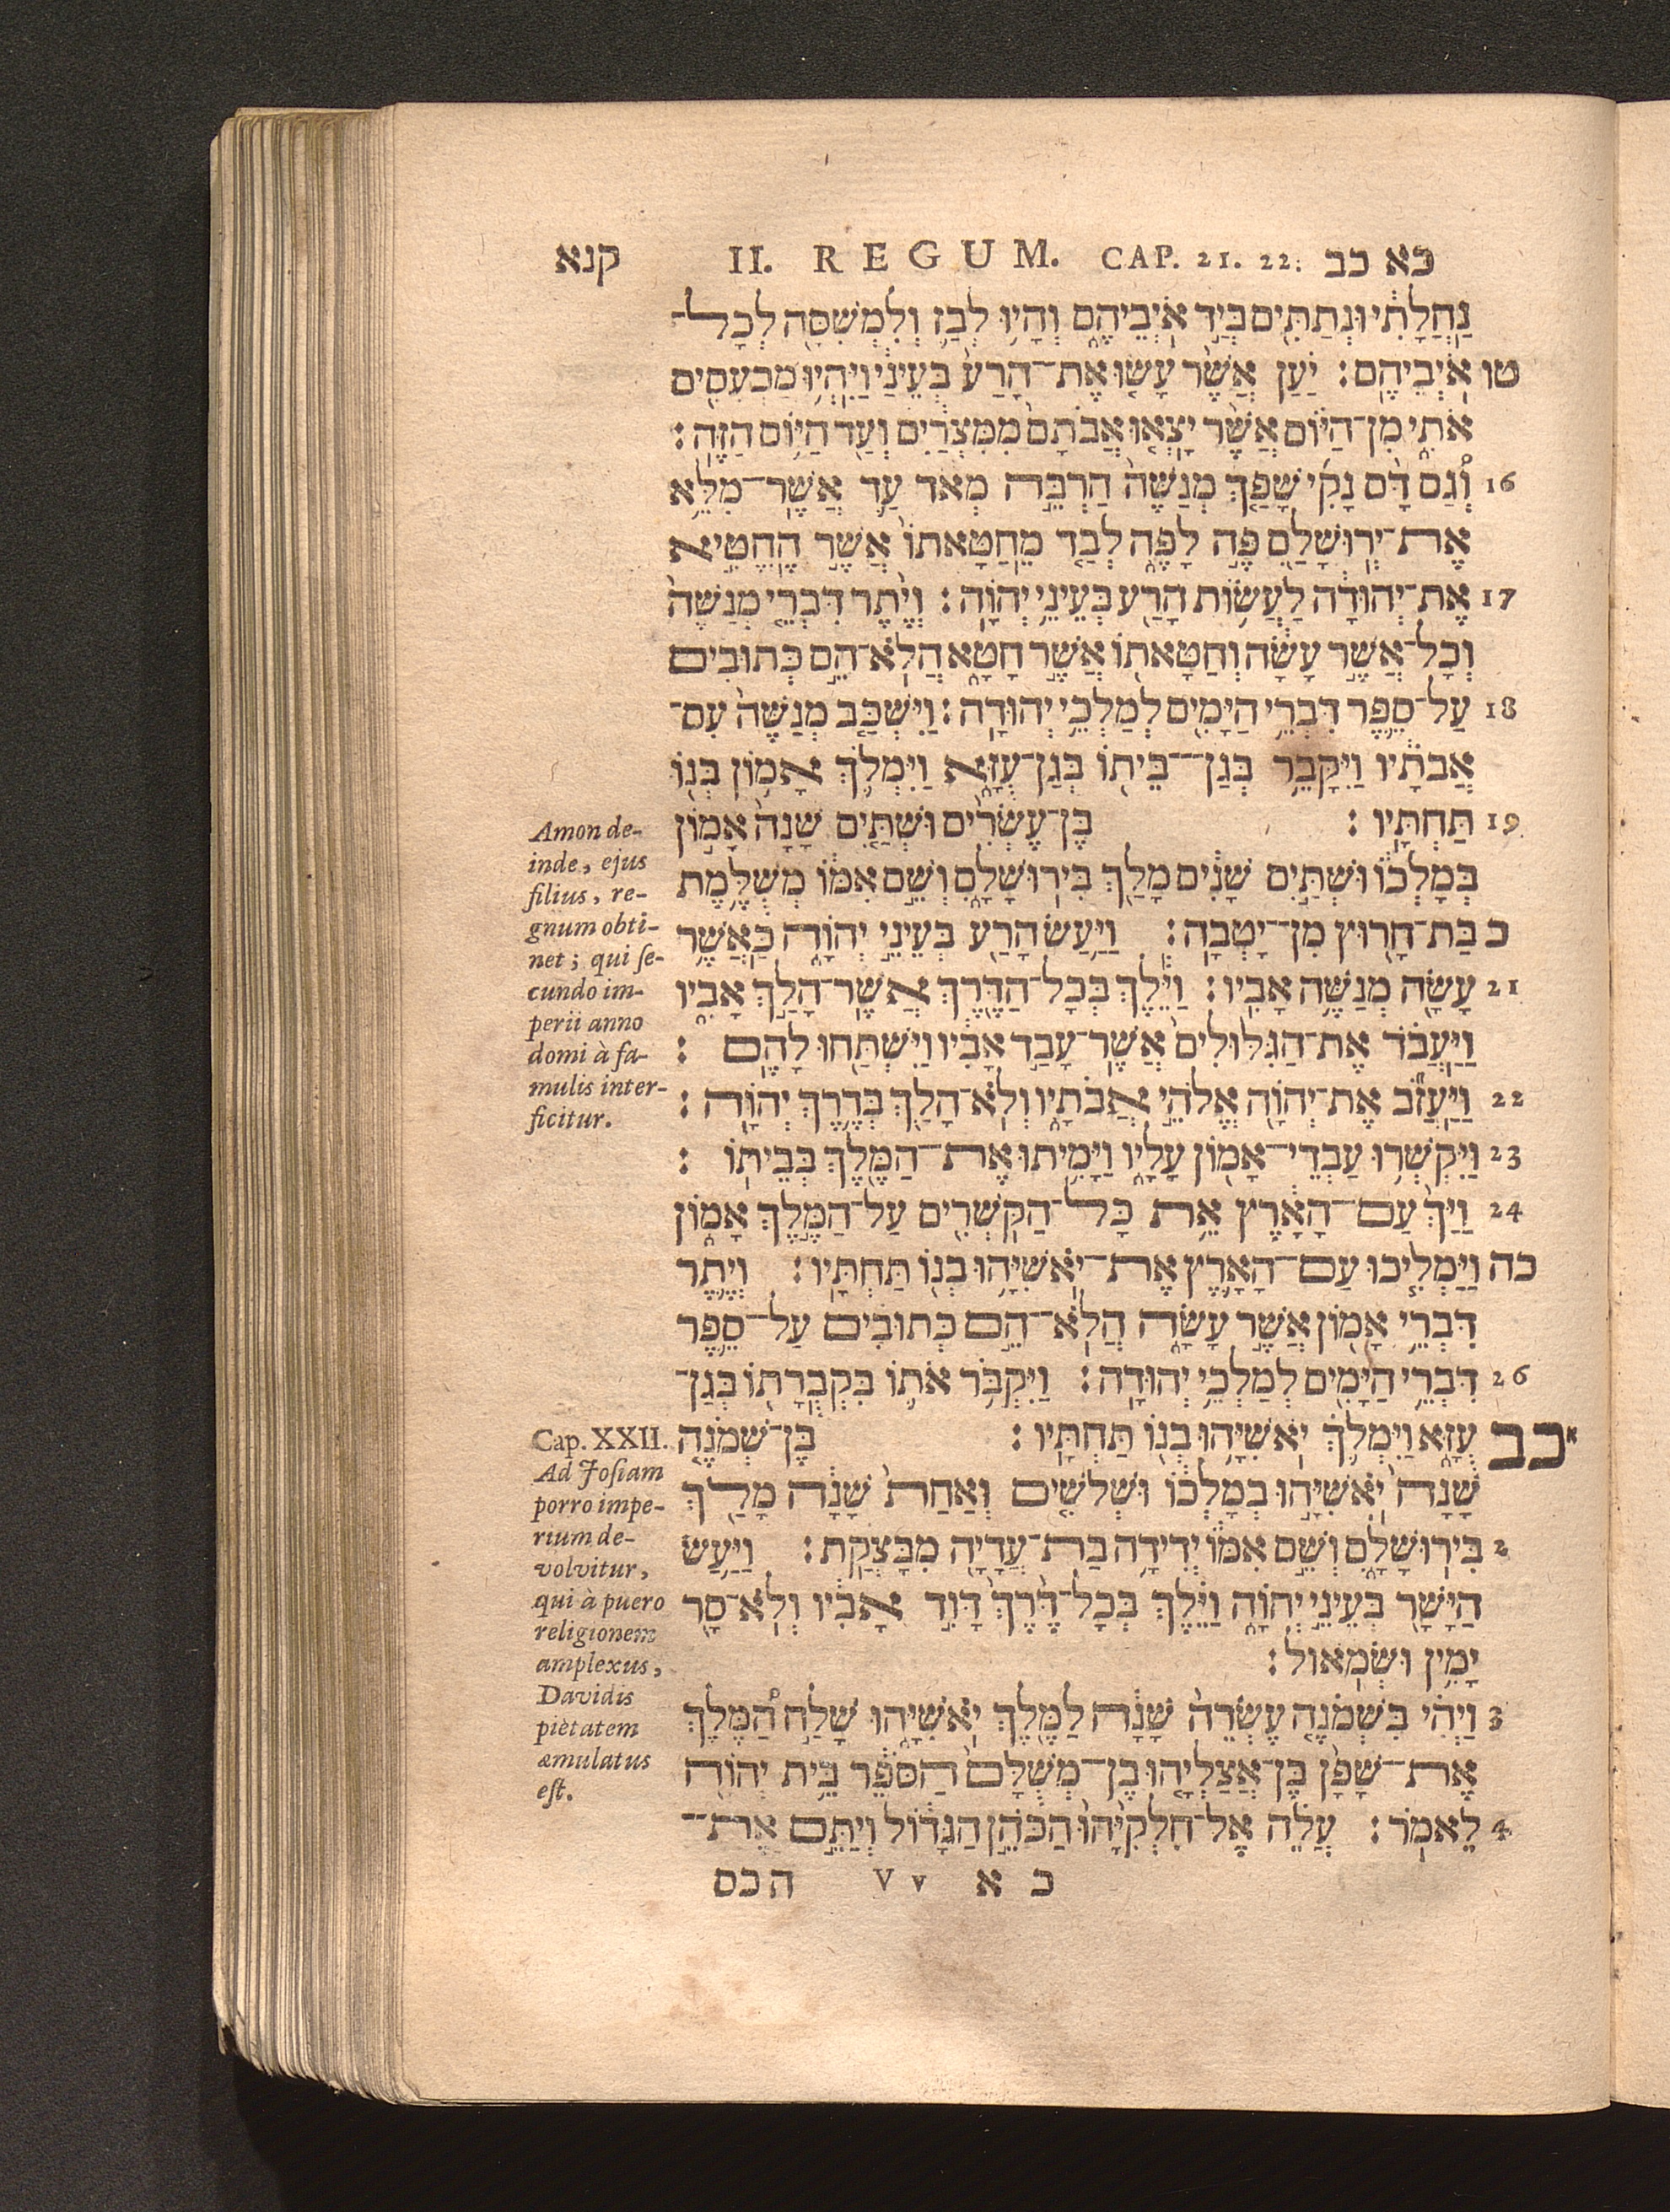 קנא II. REGUM. CAP. 21. 22: כא כב
נַחֲלָתִי וּנְתַתִּים בְּיַד אֹיְבֵיהֶם וְהָיוּ לְבַז וְלִמְשִׁסָּה לְכָל־
טו אֹיְבֵיהֶם: יַעַן אֲשֶׁר עָשׂוּ אֶת־הָרַע בְּעֵינַי וַיִּהְיוּ מַכְעִסִים
אֹתִי מִן־הַיּוֹם אֲשֶׁר יָצְאוּ אֲבֹתָם מִמִּצְרַיִם וְעַד הַיּוֹם הַזֶּה:
16 וְגַם דָּם נָקִי שָׁפַךְ מְנַשֶּׁה הַרְבֵּה מְאֹד עַד אֲשֶׁר־מִלֵּא
אֶת־יְרוּשָׁלִַם פֶּה לָפֶה לְבַד מֵחַטָּאתוֹ אֲשֶׁר הֶחֱטִיא
17 אֶת־יְהוּדָה לַעֲשׂוֹת הָרַע בְּעֵינֵי יְהוָֹה: וְיֶתֶר דִּבְרֵי מְנַשֶּׁה
וְכָל־אֲשֶׁר עָשָׂה וְחַטָּאתוֹ אֲשֶׁר חָטָא הֲלֹא־הֵם כְּתוּבִים
18 עַל־סֵפֶר דִּבְרֵי הַיָּמִים לְמַלְכֵי יְהוּדָה: וַיִּשְׁכַּב מְנַשֶּׁה עִם־
אֲבֹתָיו וַיִּקָּבֵר בְּגַן־בֵּיתוֹ בְּגַן־עֻזָּא וַיִּמְלֹךְ אָמוֹן בְּנוֹ
19 תַּחְתָּיו: בֶּן־עֶשְׂרִים וּשְׁתַּיִם שָׁנָה אָמוֹן
בְּמָלְכוֹ וּשְׁתַּיִם שָׁנִים מָלַךְ בִּירוּשָׁלִָם וְשֵׁם אִמּוֹ מְשֻׁלֶּמֶת
כ בַּת־חָרוּץ מִן־יָטְבָה: וַיַּעַשׂ הָרַע בְּעֵינֵי יְהוָֹה כַּאֲשֶׁר
21 עָשָׂה מְנַשֶּׁה אָבִיו: וַיֵּלֶךְ בְּכָל־הַדֶּרֶךְ אֲשֶׁר־הָלַךְ אָבִיו
וַיַּעֲבֹד אֶת־הַגִּלּוּלִים אֲשֶׁר־עָבַד אָבִיו וַיִּשְׁתַּחוּ לָהֶם:
22 וַיַּעֲזֹב אֶת־יְהוָֹה אֱלֹהֵי אֲבֹתָיו וְלֹא־הָלַךְ בְּדֶרֶךְ יְהוָֹה:
23 וַיִּקְשְׁרוּ עַבְדֵי־אָמוֹן עָלָיו וַיָּמִיתוּ אֶת־הַמֶּלֶךְ בְּבֵיתוֹ:
24 וַיַּךְ עַם־הָאָרֶץ אֵת כָּל־הַקֹּשְׁרִים עַל־הַמֶּלֶךְ אָמוֹן
כה וַיַּמְלִיכוּ עַם־הָאָרֶץ אֶת־יֹאשִׁיָּהוּ בְנוֹ תַּחְתָּיו: וְיֶתֶר
דִּבְרֵי אָמוֹן אֲשֶׁר עָשָׂה הֲלֹא־הֵם כְּתוּבִים עַל־סֵפֶר
26 דִּבְרֵי הַיָּמִים לְמַלְכֵי יְהוּדָה: וַיִּקְבֹּר אֹתוֹ בִּקְבֻרָתוֹ בְּגַן־
כב א עֻזָּא וַיִּמְלֹךְ יֹאשִׁיָּהוּ בְנוֹ תַּחְתָּיו: בֶּן־שְׁמֹנֶה
שָׁנָה יֹאשִׁיָּהוּ בְמָלְכוֹ וּשְׁלֹשִׁים וְאַחַת שָׁנָה מָלַךְ
2 בִּירוּשָׁלִָם וְשֵׁם אִמּוֹ יְדִידָה בַת־עֲדָיָה מִבָּצְקַת: וַיַּעַשׂ
הַיָּשָׁר בְּעֵינֵי יְהוָֹה וַיֵּלֶךְ בְּכָל־דֶּרֶךְ דָּוִד אָבִיו וְלֹא־סָר
יָמִין וּשְׂמֹאול:
3 וַיְהִי בִּשְׁמֹנֶה עֶשְׂרֵה שָׁנָה לַמֶּלֶךְ יֹאשִׁיָּהוּ שָׁלַח הַמֶּלֶךְ
אֶת־שָׁפָן בֶּן־אֲצַלְיָהוּ בֶן־מְשֻׁלָּם הַסֹּפֵר בֵּית יְהוָֹה
4 לֵאמֹר: עֲלֵה אֶל־חִלְקִיָּהוּ הַכֹּהֵן הַגָּדוֹל וְיַתֵּם אֶת־
כא V v הכס
Amon de-
inde, ejus
filius, re-
gnum obti-
net; qui se-
cundo im-
perii anno
domi à fa-
mulis inter-
ficitur.
Cap. XXII.
Ad Josiam
porro impe-
rium de-
volvitur,
qui à puero
religionem
amplexus,
Davidis
pietatem
æmulatus
est.